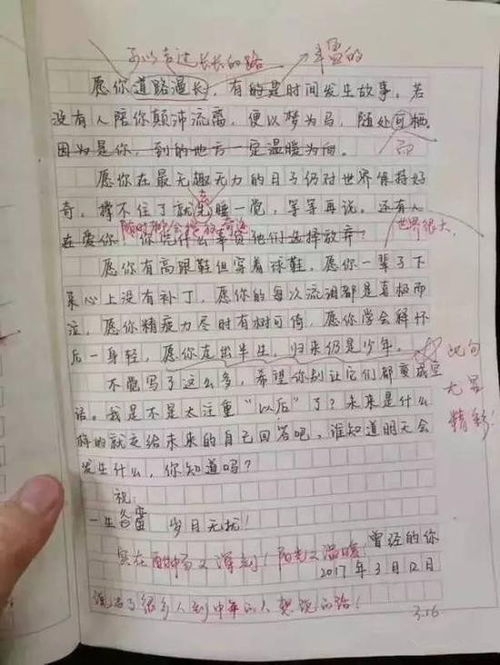 可以走过长长的路 丰富的
愿你道路漫长,有的是时间发生故事。若
没有人陪你颠沛流离,便以梦为马,随处可栖。
因为是你,到的地方一定温暖为向。 即
愿你在最无趣无力的日子仍对世界保持好
奇。撑不住了就先睡一觉,等等再说。还有人
在爱你 你凭什么事负他们选择放弃? 世界很大
愿你有高跟鞋但穿着球鞋,愿你一辈子下
来心上没有补丁,愿你的每次流泪都是喜极而
泣,愿你精疲力尽时有树可倚,愿你学会释怀
后一身轻,愿你走出半生,归来仍是少年。 此句
不觉写了这么多,希望你别让它们都变成空 尤显
话。我是不是太注重“以后”了?未来是什么 精彩
样的就交给未来的自己回答吧,谁知道明天会
发生什么,你知道吗?
祝:
一生 岁月无扰!
实在酣畅又深刻!阳光又温暖 曾经的你
2017年3月12日
说出了很多人到中年的人想说的话!
3.16